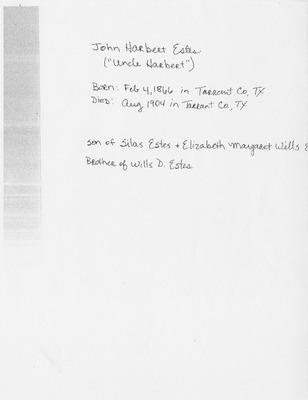 John Harbert Estes
("Uncle Harbert")
Born: Feb 4, 1866 in Tarrant Co, TX
Died: Aug 1904 in Tarrant Co, TX
son of Silas Estes + Elizabeth Margaret Wills E
Brother of Wills D. Estes